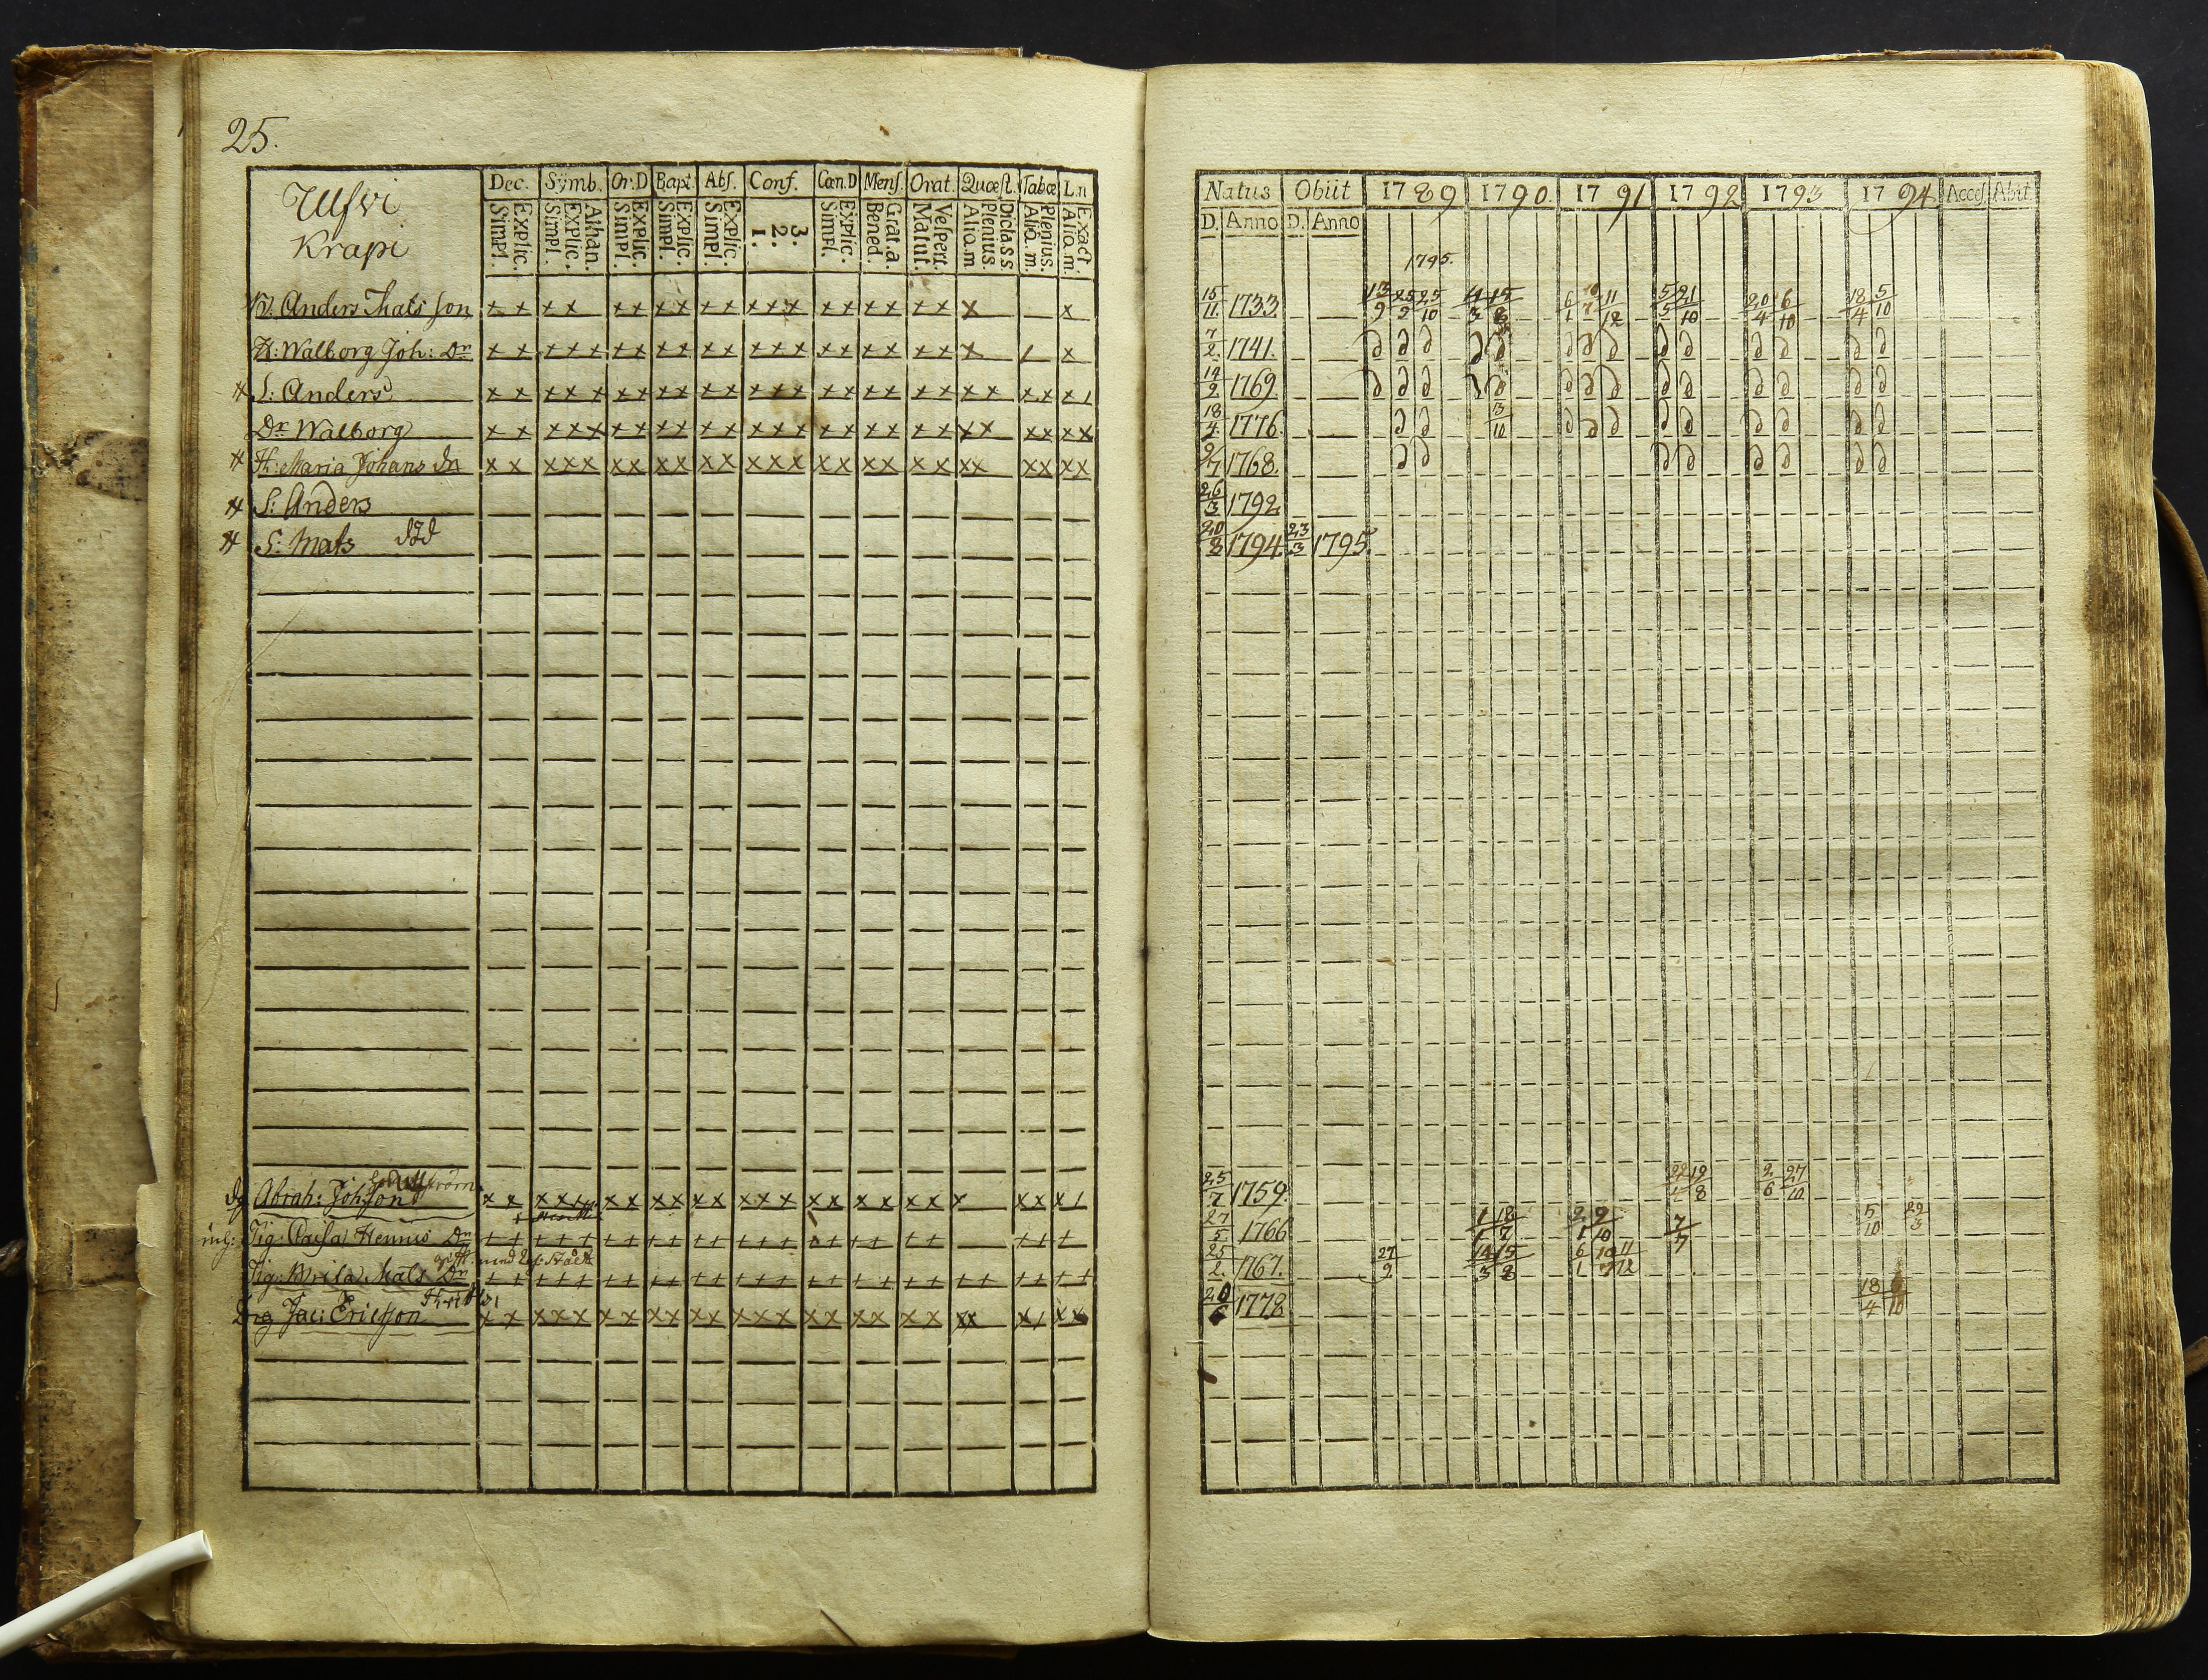 25.
Ulfvi
Krapi
Dec. Symb. Or:D Bapt. Abs. Conf. Cœn.D Mens. Orat. Quœst. Tabœ L.n
Simpl. Explic. Simpl. Explic. Athan. Simpl. Explic. Simpl. Explic. Simpl. Explic. 1. 2. 3. Simpl. Explic. Bened. Grat.a. Matut. Vespert. Aliq.m Plenius. Diclass Aliq.m. Plenius. Aliq.m. Exact.
Anders Mats son x x x x x x x x x x x x x x x x x x x x x
H: Walborg Joh: Dr x x x x x x x x x x x x x x x x x x x x / x
S: Anders x x x x x x x x x x x x x x x x x x x x x x x x x /
Dr Walborg x x x x x x x x x x x x x x x x x x x x x x x x x x
H: Maria Johans dr x x x x x x x x x x x x x x x x x x x x x x x x x x
S: Anders
S: Mats död
Abrah: Johsson
inh: Pig: Caisa Hennis Dr
Pig: Brita Mats Dr
Drg Jac: Ericsson
Natus Obiit 1789 1790. 1791 1792 1793 1794 Access. Abit.
D. Anno D. Anno
1795.
15/11 1733. 13/9 25/2 25/10 4/3 15/8 6/1 11/12 5/5 21/10 20/4 6/10 18/4 5/10
7/2 1741.
14/2 1769.
18/4 1776. 13/10
9/7 1768.
26/3 1792
20/8 1794 23/3 1795.
25/7 1759. 22/4 19/8 2/6 27/10
27/5 1766 1/1 18/7 2/1 9/10 7/7 5/10 29/3
25/2 1767. 27/9 14/3 15/8 6/1 10/7 11/12
20/6 1778 18/4